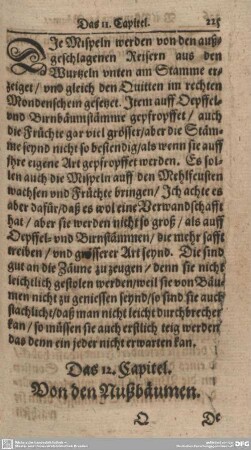 Das 11. Capitel. 225
DJe Mispeln werden von den auß-
geschlagenen Reisern aus den
Wurtzeln vnten am Stamme er-
zeiget / vnd gleich den Quitten im rechten
Mondenschein gesetzet. Item auff Oepffel-
vnd Birnbäumstämme gepfropfft / auch
die Früchte gar viel grösser / aber die Stäm-
me seynd nicht so bestendig / als wenn sie auff
ihre eigene Art gepfropffet werden. Es sol-
len auch die Mispeln auff den Mehlfeusten
wachsen vnd Früchte bringen / Jch achte es
aber dafür / daß es wol eine Verwandschafft
hat / aber sie werden nicht so groß / als auff
Oepffel- vnd Birnstämmen / die mehr safft
treiben / vnd grösserer Art seynd. Die sind
gut an die Zäune zu zeugen / denn sie nicht
leichtlich gestolen werden / weil sie von Bäu-
men nicht zu geniessen seynd / so sind sie auch
stachlicht / daß man nicht leicht durchbrechen
kan / so müssen sie auch erstlich teig werden
das denn ein jeder nicht erwarten kan.
Das 12. Capitel.
Von den Nußbäumen.
Q De